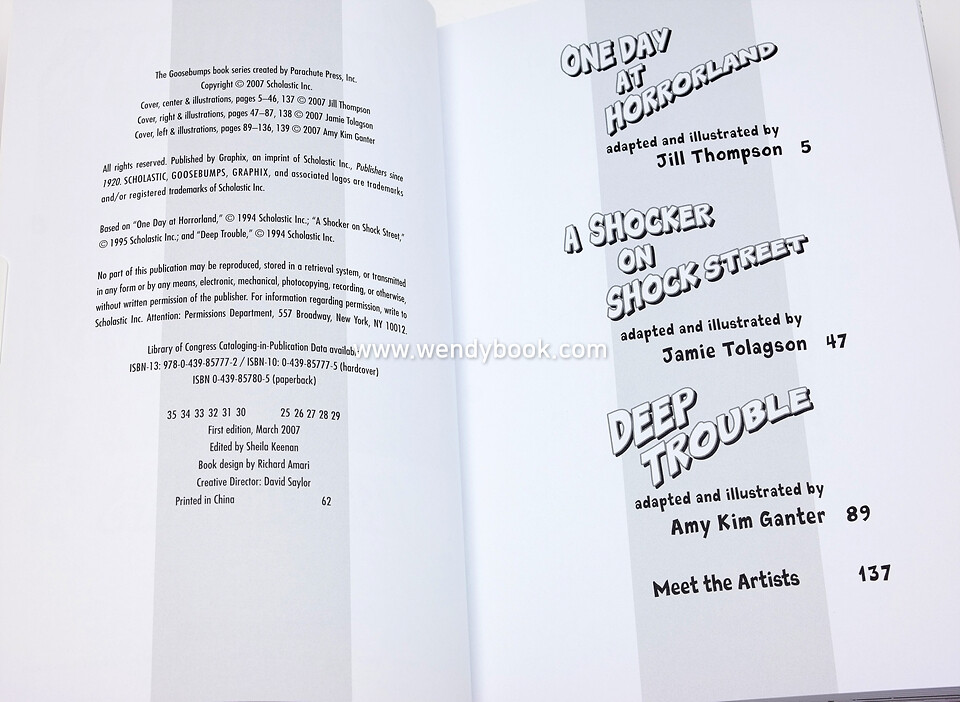 The Goosebumps book series created by Parachute Press, Inc.
Copyright © 2007 Scholastic Inc.
Cover, center & illustrations, pages 5–46, 137 © 2007 Jill Thompson
Cover, right & illustrations, pages 47–87, 138 © 2007 Jamie Tolagson
Cover, left & illustrations, pages 89–136, 139 © 2007 Amy Kim Ganter
All rights reserved. Published by Graphix, an imprint of Scholastic Inc., Publishers since
1920. SCHOLASTIC, GOOSEBUMPS, GRAPHIX, and associated logos are trademarks
and/or registered trademarks of Scholastic Inc.
Based on “One Day at Horrorland,” © 1994 Scholastic Inc.; “A Shocker on Shock Street,”
© 1995 Scholastic Inc.; and “Deep Trouble,” © 1994 Scholastic Inc.
No part of this publication may be reproduced, stored in a retrieval system, or transmitted
in any form or by any means, electronic, mechanical, photocopying, recording, or otherwise,
without written permission of the publisher. For information regarding permission, write to
Scholastic Inc. Attention: Permissions Department, 557 Broadway, New York, NY 10012.
Library of Congress Cataloging-in-Publication Data available
ISBN-13: 978-0-439-85777-2 / ISBN-10: 0-439-85777-5 (hardcover)
ISBN 0-439-85780-5 (paperback)
35 34 33 32 31 30 25 26 27 28 29
First edition, March 2007
Edited by Sheila Keenan
Book design by Richard Amari
Creative Director: David Saylor
Printed in China 62
ONE DAY
AT
HORRORLAND
adapted and illustrated by
Jill Thompson 5
A SHOCKER
ON
SHOCK STREET
adapted and illustrated by
Jamie Tolagson 47
DEEP
TROUBLE
adapted and illustrated by
Amy Kim Ganter 89
Meet the Artists 137
www.wendybook.com